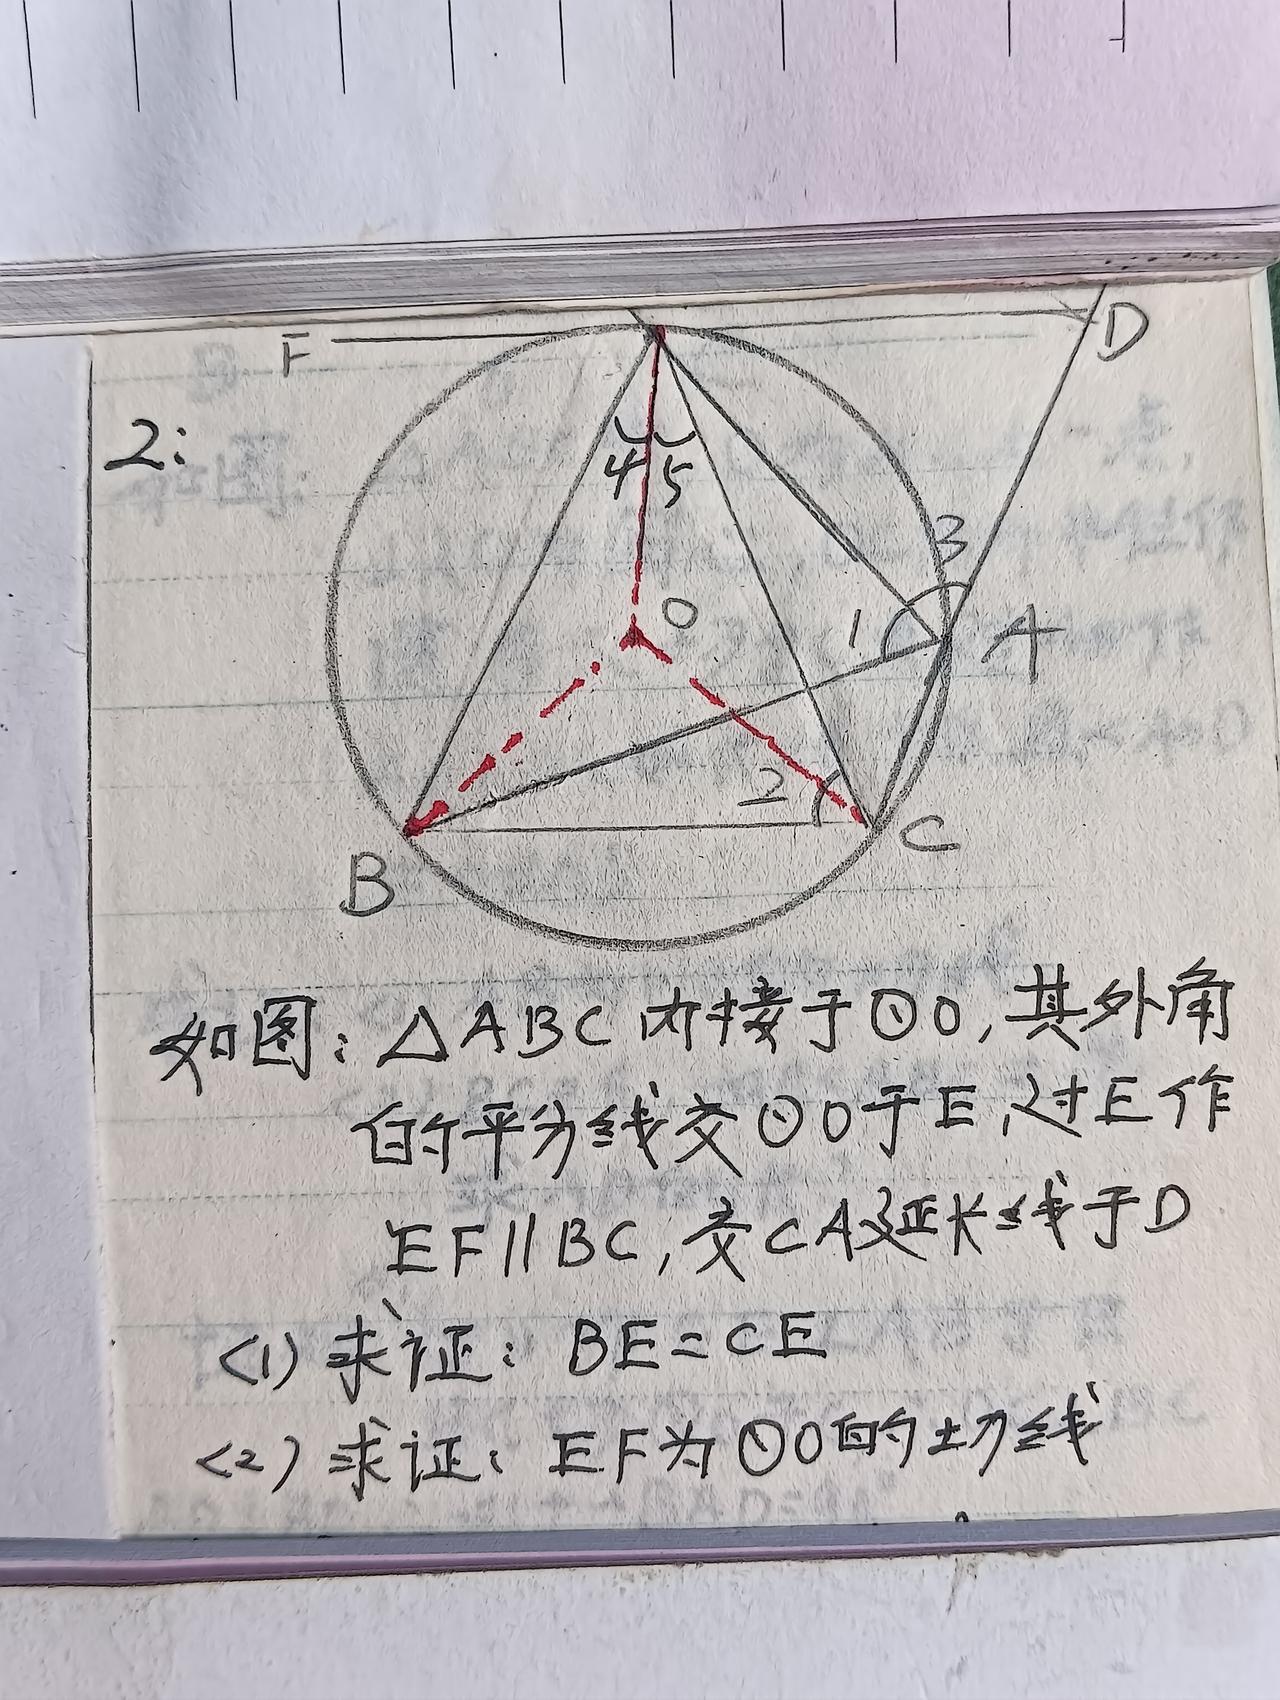 F
D
2:
4 5
3
O
1
A
2
B
C
如图:△ABC内接于⊙O,其外角
的平分线交⊙O于E,过E作
EF∥BC,交CA延长线于D
<1) 求证: BE=CE
<2) 求证: EF为⊙O的切线